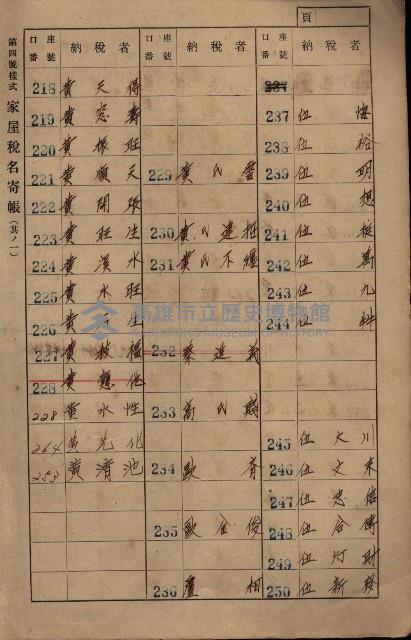 頁
第四號樣式 家屋稅名寄帳 (其ノ一)
口座番號 納稅者
218 黃天得
219 黃
220 黃振旺
221 黃順天
222 黃開
223 黃旺生
224 黃漢水
225 黃水旺
226 黃 生
227 黃枝福
228 黃 池
228 黃水性
264 黃
253 黃清池
口座番號 納稅者
229 黃氏
230 黃氏建
231 黃氏不纏
232 蔡進義
233 高氏
234 歐
235 歐金俊
236 盧 柏
口座番號 納稅者
237
237 伍
238 伍 裕
239 伍 明
240 伍 想
241 伍
242 伍 萬
243 伍 九
244 伍
245 伍大川
246 伍文來
247 伍忠信
248 伍合傳
249 伍灯財
250 伍新
高雄市立歷史博物館
KAOHSIUNG MUSEUM OF HISTORY